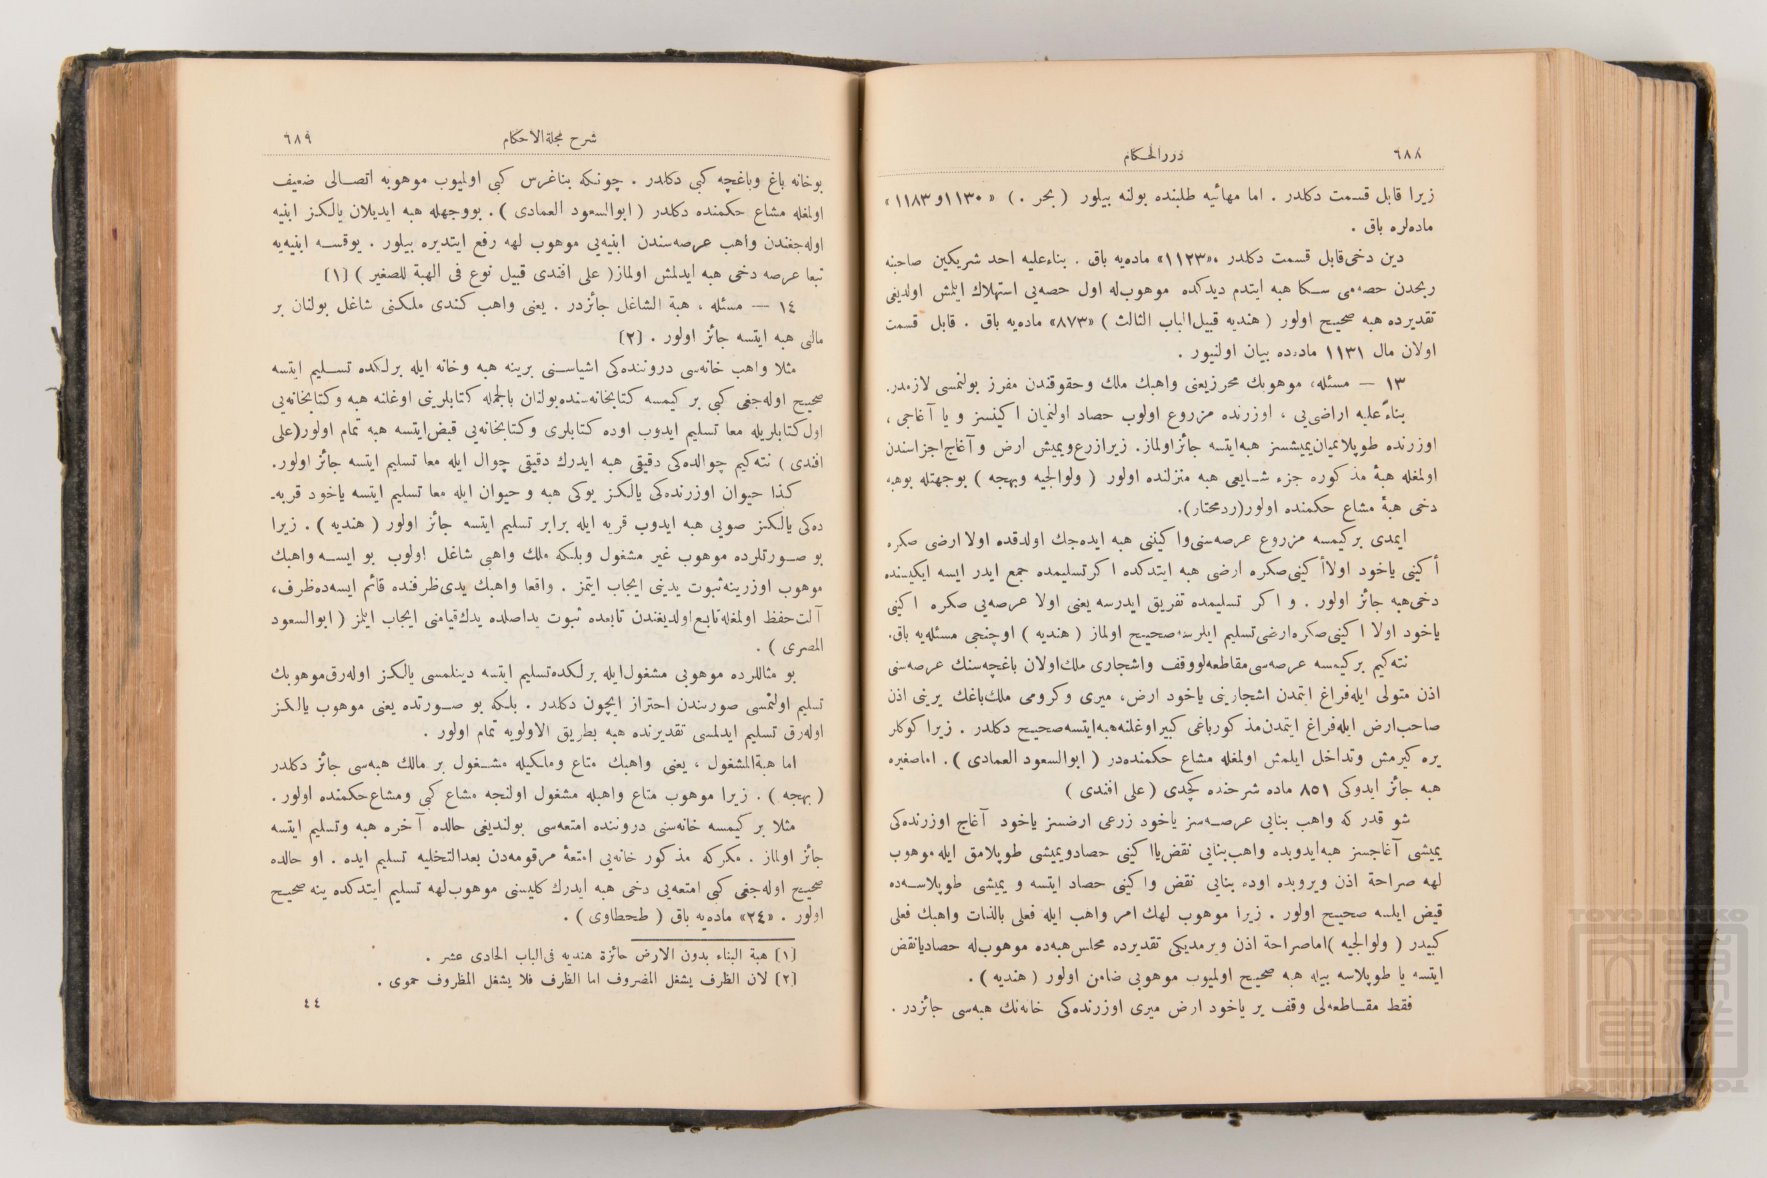 ٦٨٨
دررالحكام
زيرا قابل قسمت دكلدر . اما مهائيه طلبنده بولنه بيلور ( بحر . ) « ١١٣٠و ١١٨٣»
ماده‌لره باق .
دين دخی‌قابل قسمت دكلدر ،«١١٢٣» ماده‌يه باق . بناءعليه احد شريكين صاحبنه
ربحدن حصه‌می سكا هبه ايتدم ديدكده موهوب‌له اول حصه‌يی استهلاك ايلمش اولديغی
تقديرده هبه صحيح اولور ( هنديه قبيل‌الباب الثالث ) «٨٧٣» ماده‌يه باق . قابل قسمت
اولان مال ١١٣١ ماده‌ده بيان اولنيور .
١٣ — مسئله، موهوبك محرزيعنی واهبك ملك وحقوقندن مفرز بولنمسی لازمدر.
بناءً عليه اراضی‌يی ، اوزرنده مزروع اولوب حصاد اولنميان اكينسز و يا آغاجی ،
اوزرنده طوپلانميان‌يميشسز هبه‌ايتسه جائزاولماز. زيرازرع‌ويميش ارض وآغاج‌اجزاسندن
اولمغله هبۀ مذكوره جزء شايعی هبه منزلنده اولور ( ولوالجيه وبهجه ) بوجهتله بوهبه
دخی هبۀ مشاع حكمنده اولور(ردمحتار).
ايمدی بركيمسه مزروع عرصه‌سنی‌واكينی هبه ايده‌جك اولدقده اولا ارضی صكره
أكينی ياخود اولاأكينی‌صكره ارضی هبه ايتدكده اكرتسليمده جمع ايدر ايسه ايكيسنده
دخی‌هبه جائز اولور . و اكر تسليمده تفريق ايدرسه يعنی اولا عرصه‌يی صكره اكينی
ياخود اولا اكينی‌صكره‌ارضی‌تسليم ايلرسه‌صحيح اولماز ( هنديه ) اوچنجی مسئله‌يه باق.
نته‌كيم بركيمسه عرصه‌سی‌مقاطعه‌لووقف واشجاری ملك‌اولان باغچه‌سنك عرصه‌سنی
اذن متولی ايله‌فراغ ايتمدن اشجارينی ياخود ارض، ميری وكرومی ملك‌باغك يرينی اذن
صاحب‌ارض ايله‌فراغ ايتمدن‌مذكورباغی كبيراوغلنه‌هبه‌ايتسه‌صحيح دكلدر . زيرا كوكلر
يره كيرمش وتداخل ايلمش اولمغله مشاع حكمنده‌در ( ابوالسعود العمادی ) . اماصغيره
هبه جائز ايدوكی ٨٥١ ماده شرحنده كچدی ( علی افندی )
شو قدر كه واهب بنايی عرصه‌سز ياخود زرعی ارضسز ياخود آغاج اوزرنده‌كی
يميشی آغاجسز هبه‌ايدوبده واهب‌بنايی نقض‌يااكينی حصادويميشی طوپلامق ايله موهوب
لهه صراحة اذن ويروبده اوده بنايی نقض واكينی حصاد ايتسه و يميشی طوپلاسه‌ده
قبض ايلسه صحيح اولور . زيرا موهوب لهك امر واهب ايله فعلی بالذات واهبك فعلی
كبيدر ( ولوالجيه )اماصراحة اذن ويرمديكی تقديرده مجلس‌هبه‌ده موهوب‌له حصاديانقض
ايتسه يا طوپلاسه بيله هبه صحيح اولميوب موهوبی ضامن اولور ( هنديه ) .
فقط مقاطعه‌لی وقف ير ياخود ارض ميری اوزرنده‌كی خانه‌نك هبه‌سی جائزدر .
شرح مجلة‌الاحكام
٦٨٩
بوخانه باغ وباغچه كبی دكلدر . چونكه بناغرس كبی اولميوب موهوبه اتصالی ضعيف
اولمغله مشاع حكمنده دكلدر ( ابوالسعود العمادی ) . بووجهله هبه ايديلان يالكز ابنيه
اوله‌جغندن واهب عرصه‌سندن ابنيه‌يی موهوب لهه رفع ايتديره بيلور . يوقسه ابنيه‌يه
تبعا عرصه دخی هبه ايدلمش اولماز( علی افندی قبيل نوع فی الهبة للصغير ) [١]
١٤ — مسئله ، هبة الشاغل جائزدر . يعنی واهب كندی ملكنی شاغل بولنان بر
مالی هبه ايتسه جائز اولور . [٢]
مثلا واهب خانه‌سی دروننده‌كی اشياسنی برينه هبه وخانه ايله برلكده تسليم ايتسه
صحيح اوله‌جغی كبی بر كيمسه كتابخانه‌سنده‌بولنان بالجمله كتابلرينی اوغلنه هبه وكتابخانه‌يی
اول‌كتابلريله معا تسليم ايدوب اوده كتابلری وكتابخانه‌يی قبض‌ايتسه هبه تمام اولور(علی
افندی ) نته‌كيم چوالده‌كی دقيقی هبه ايدرك دقيقی چوال ايله معا تسليم ايتسه جائز اولور.
كذا حيوان اوزرنده‌كی يالكز يوكی هبه و حيوان ايله معا تسليم ايتسه ياخود قريه‌ـ
ده‌كی يالكز صويی هبه ايدوب قريه ايله برابر تسليم ايتسه جائز اولور ( هنديه ) . زيرا
بو صورتلرده موهوب غير مشغول وبلكه ملك واهبی شاغل اولوب بو ايسه واهبك
موهوب اوزرينه‌ثبوت يدينی ايجاب ايتمز . واقعا واهبك يدی‌ظرفنده قائم ايسه‌ده‌ظرف،
آلت‌حفظ اولمغله‌تابع‌اولديغندن تابعده ثبوت يداصلده يدك‌قيامنی ايجاب ايلمز ( ابوالسعود
المصری ) .
بو مثاللرده موهوبی مشغول‌ايله برلكده‌تسليم ايتسه دينلمسی يالكز اوله‌رق‌موهوبك
تسليم اولنمسی صورتندن احتراز ايچون دكلدر . بلكه بو صورتده يعنی موهوب يالكز
اوله‌رق تسليم ايدلمسی تقديرنده هبه بطريق الاولويه تمام اولور .
اما هبة‌المشغول ، يعنی واهبك متاع وملكيله مشغول بر مالك هبه‌سی جائز دكلدر
( بهجه ) . زيرا موهوب متاع واهبله مشغول اولنجه مشاع كبی ومشاع‌حكمنده اولور.
مثلا بر كيمسه خانه‌سنی دروننده امتعه‌سی بولنديغی حالده آخره هبه وتسليم ايتسه
جائز اولماز . مكركه مذكور خانه‌يی امتعۀ مرقومه‌دن بعدالتخليه تسليم ايده . او حالده
صحيح اوله‌جغی كبی امتعه‌يی دخی هبه ايدرك كليسنی موهوب‌لهه تسليم ايتدكده ينه صحيح
اولور . «٢٤» ماده‌يه باق ( طحطاوی ) .
[١] هبة البناء بدون الارض جائزة هنديه فی‌الباب الحادی عشر .
[٢] لان الظرف يشغل المضروف اما الظرف فلا يشغل المظروف حموی .
٤٤
TOYO BUNKO